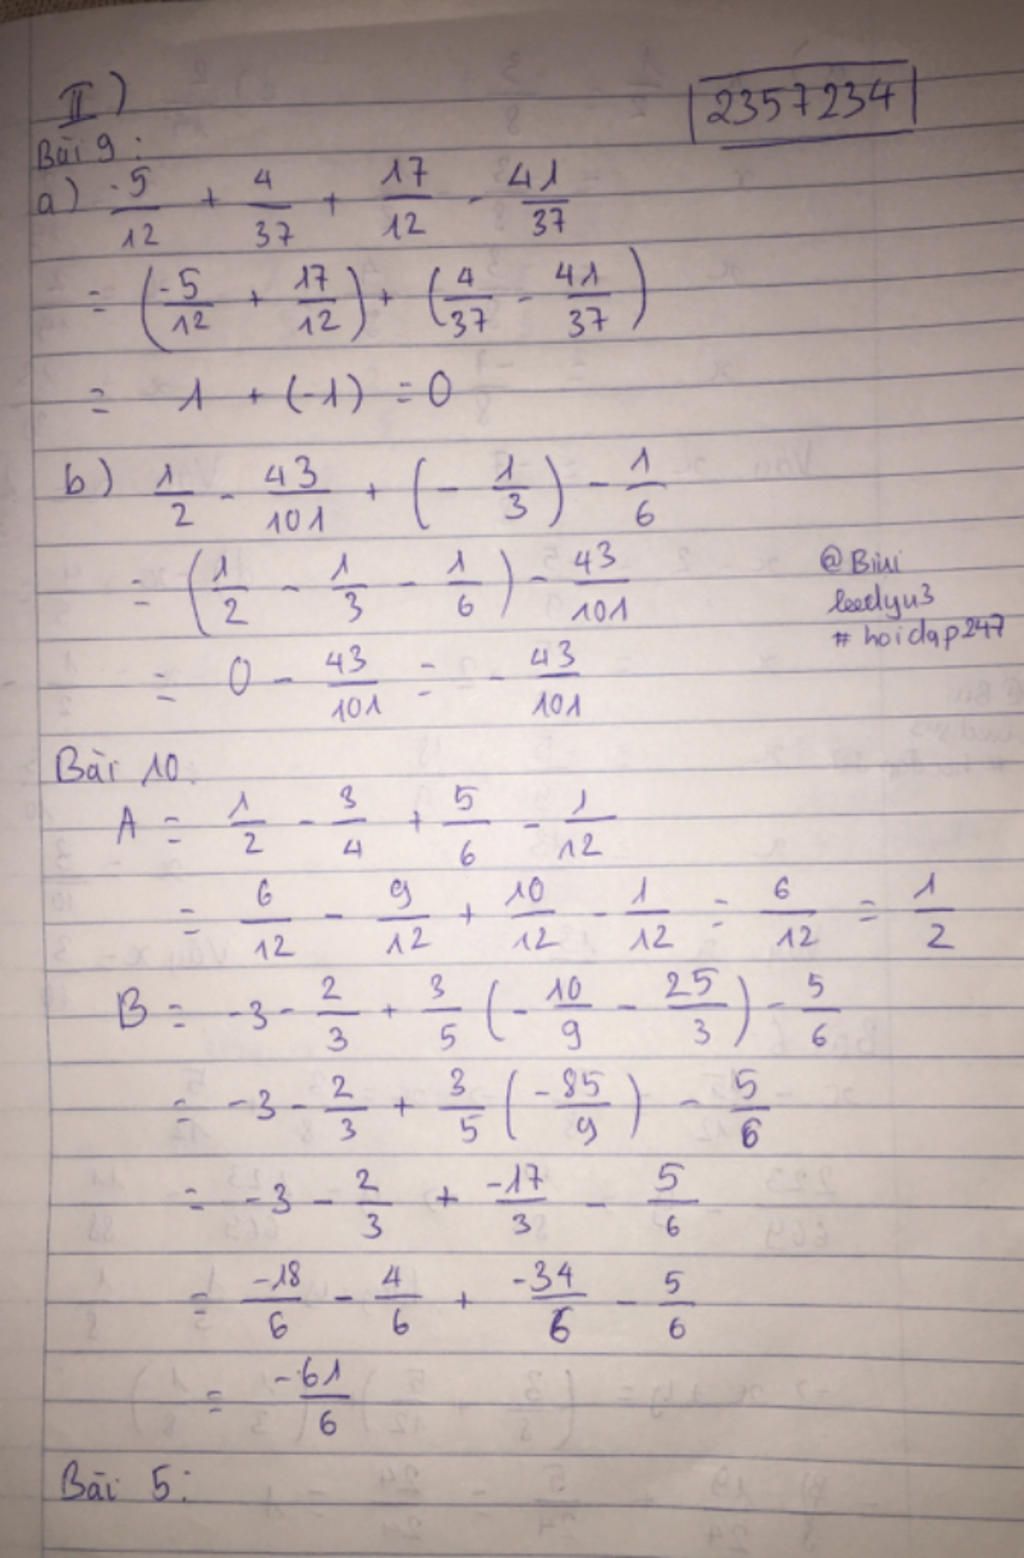 II)
2357234
Bài 9:
a) -5/12 + 4/37 + 17/12 - 41/37
= (-5/12 + 17/12) + (4/37 - 41/37)
= 1 + (-1) = 0
b) 1/2 - 43/101 + (- 1/3) - 1/6
= (1/2 - 1/3 - 1/6) - 43/101
= 0 - 43/101 = - 43/101
@Bini
#hoidap247
Bài 10.
A = 1/2 - 3/4 + 5/6 - 1/12
= 6/12 - 9/12 + 10/12 - 1/12 = 6/12 = 1/2
B = -3 - 2/3 + 3/5 (- 10/9 - 25/3) - 5/6
= -3 - 2/3 + 3/5 (-85/9) - 5/6
= -3 - 2/3 + -17/3 - 5/6
= -18/6 - 4/6 + -34/6 - 5/6
= -61/6
Bài 5: